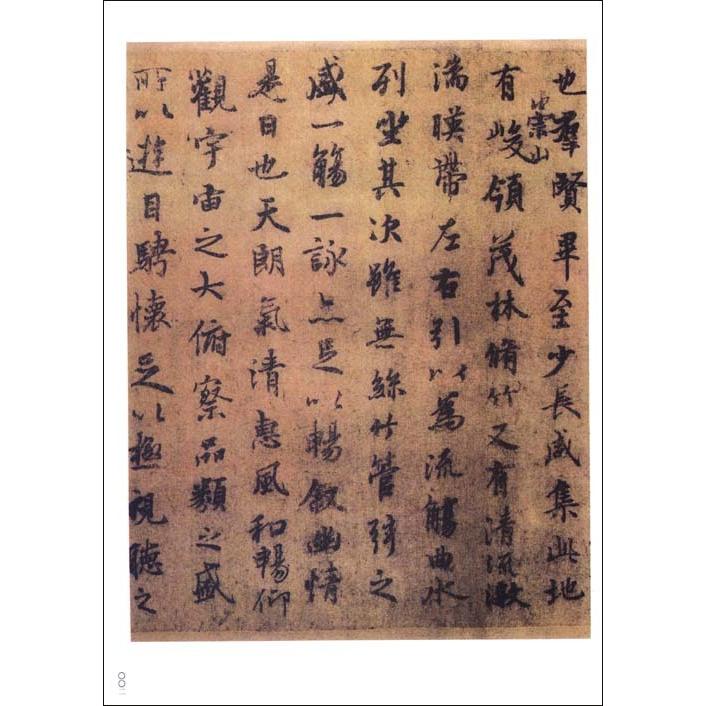 也羣賢畢至少長咸集此地
有崇山峻領茂林脩竹又有清流激
湍暎帶左右引以為流觴曲水
列坐其次雖無絲竹管弦之
盛一觴一詠亦足以暢叙幽情
是日也天朗氣清惠風和暢仰
觀宇宙之大俯察品類之盛
所以遊目騁懷足以極視聽之